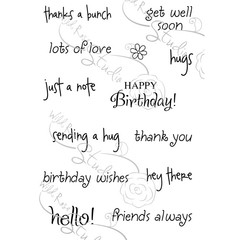 thanks a bunch
get well
soon
lots of love
hugs
just a note
HAPPY
Birthday!
sending a hug
thank you
birthday wishes
hey there
hello!
friends always
Wild Rose Studio